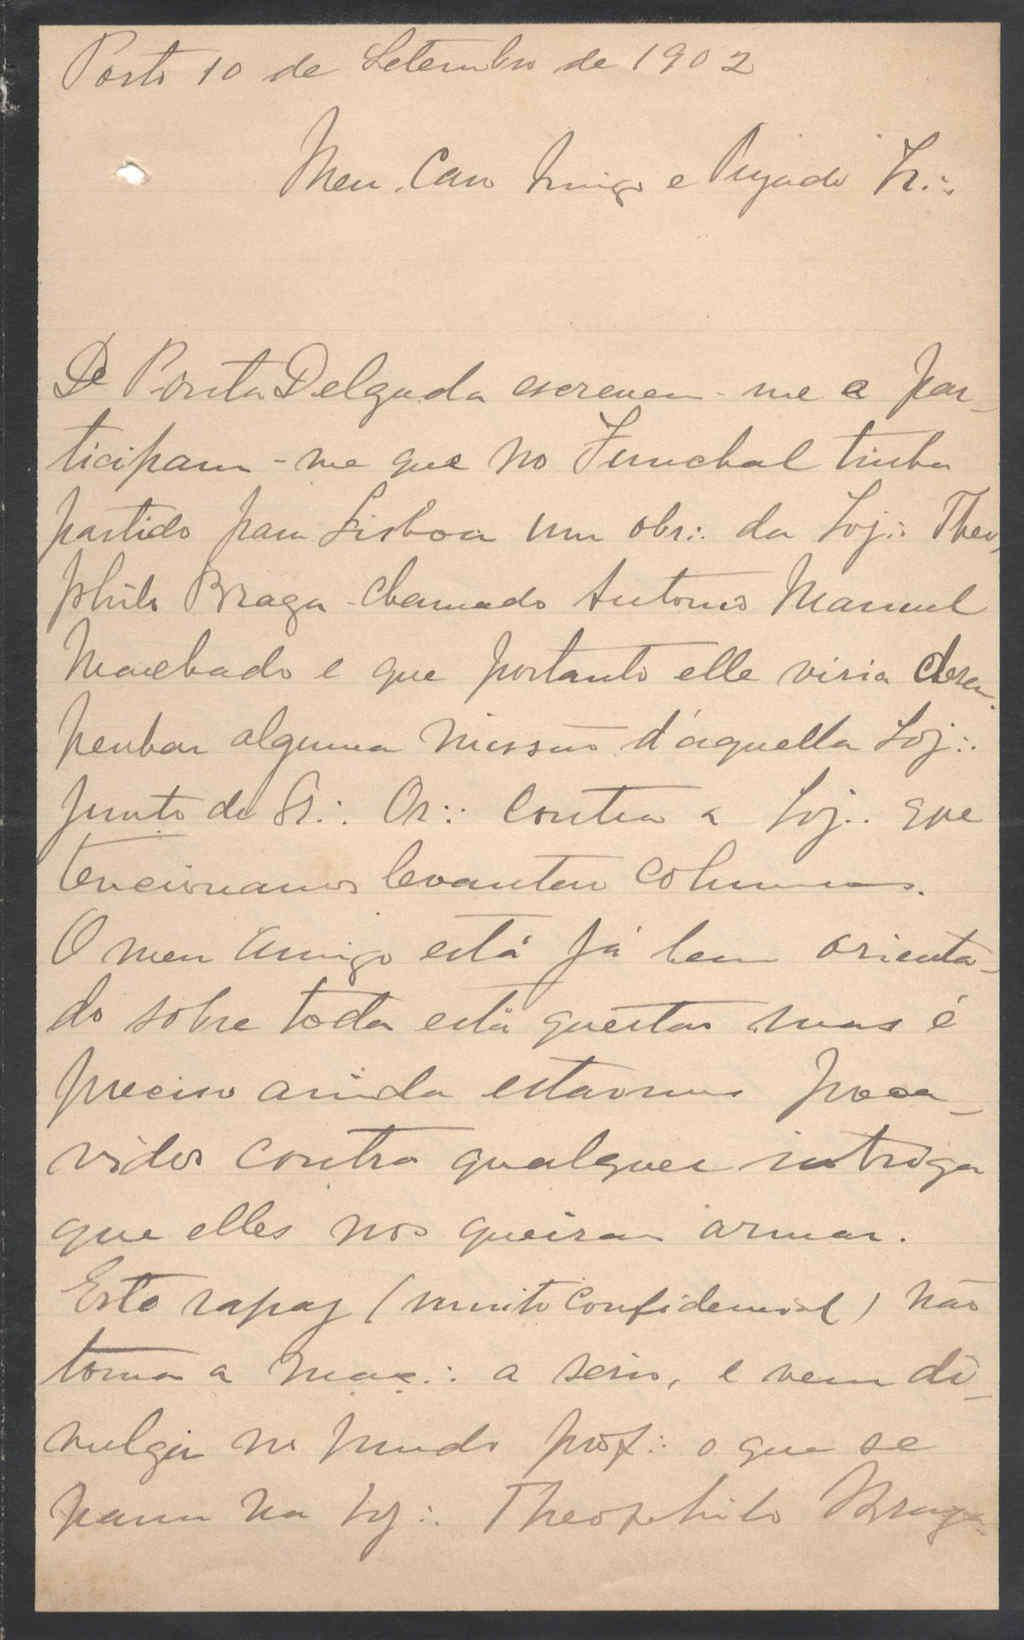 Porto 10 de Setembro de 1902
Meu Caro Amigo e Prezado Ir∴
De Ponta Delgada escrevem-me a par-
ticipam-me que no Funchal tinha
partido para Lisboa um obr∴ da Loj∴ Theo-
philo Braga chamado Antonio Manuel
Machado e que portanto elle viria desem-
penhar alguma missão d'aquella Loj∴
junto do Gr∴ Or∴ contra a Loj∴ que
tencionamos levantar columnas.
O meu amigo está já bem orienta-
do sobre toda está questão mas é
preciso ainda estarmos preca-
vidos contra qualquer intriga
que elles nos queiram armar.
Este rapaz (muito confidencial) não
toma a Maç∴ a serio, e vem di-
vulgar no mundo prof∴ o que se
passa na Loj∴ Theophilo Braga